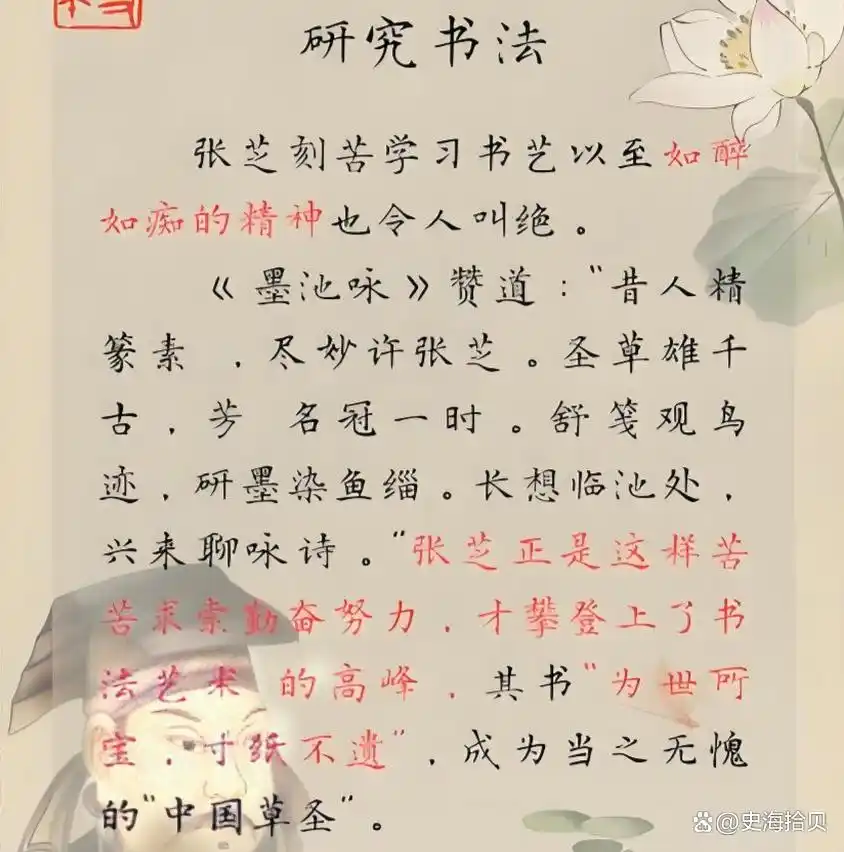 研究书法
张芝刻苦学习书艺以至如醉
如痴的精神也令人叫绝。
《墨池咏》赞道：“昔人精
篆素，尽妙许张芝。圣草雄千
古，芳 名冠一时。舒笺观鸟
迹，研墨染鱼缁。长想临池处，
兴来聊咏诗。“张芝正是这样苦
苦求索勤奋努力，才攀登上了书
法艺术 的高峰，其书“为世所
宝，寸纸不遗”，成为当之无愧
的“中国草圣”。
@史海拾贝